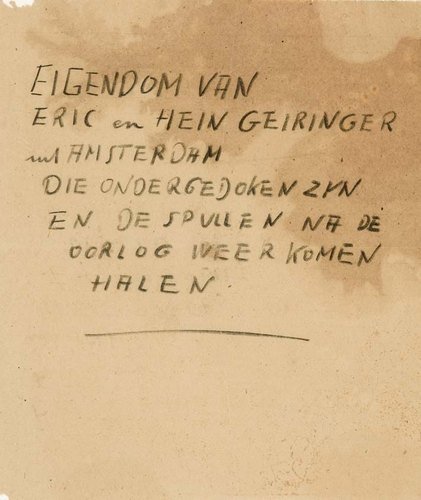 EIGENDOM VAN
ERIC en HEIN GEIRINGER
uit AMSTERDAM
DIE ONDERGEDOKEN ZYN
EN DE SPULLEN NA DE
OORLOG WEER KOMEN
HALEN